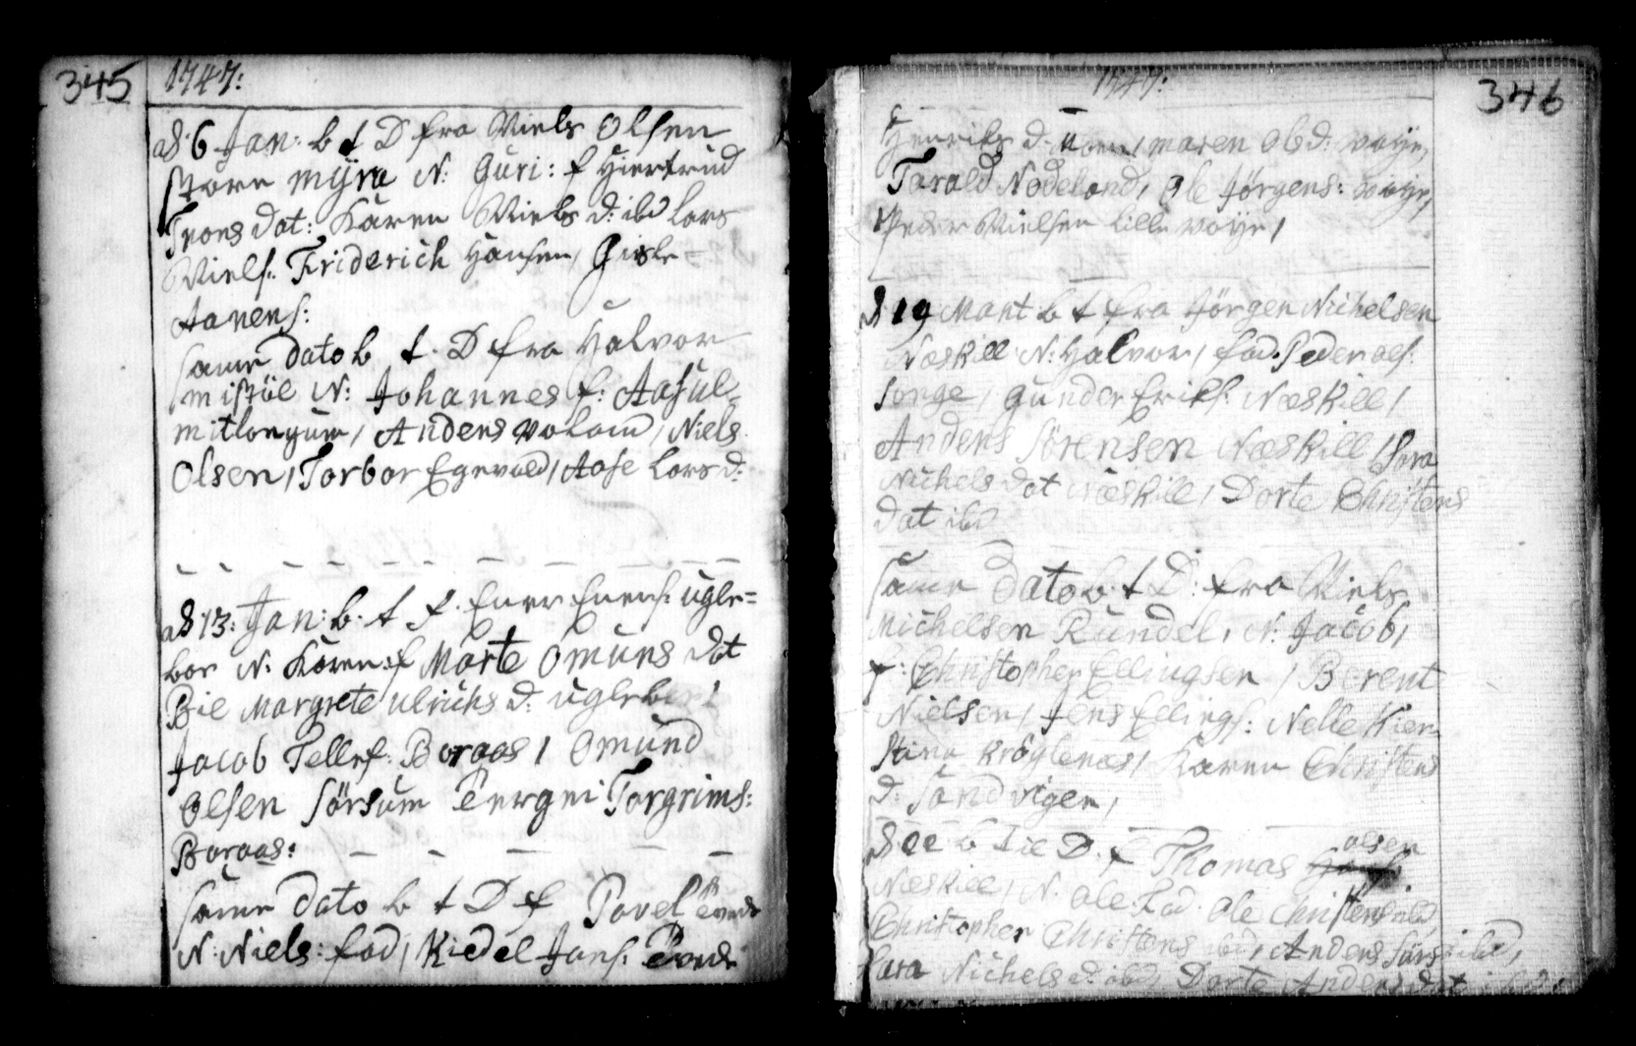 345
1747:
d 6 Jan: b t D fra Niels Olsen
store Myra N: Guri: f Hiertrud
Trons dat: Karen Niels d: ibd Lars
Niels: Friderich Hansen /
Aanens:
same dato b t. D fra Halvor
N: Johannes f: Aasul-
/ Anders / Niels
Olsen / Torbor Egevold / Aase Lars d:
d 13: Jan: b. t f. Even Evens: ugle=
bor N: Karen: f Marte Omuns dat
Bie Margrete Ulrichs d: uglebor /
Jacob Tellef: Boraas / Omund
Olsen Torgrims:
Boraas:
same dato b t D f Povel
N: Niels: fad / Kiedel Jans:
1747:
346
Henriks d: / Maren Ols d: voye,
Tarald Nodeland, Ole Jörgens: voye,
Peder Nielsen lille voye /
d 19 Mart b t fra Jörgen Nichelsen
Næskill N: Halvor / fad. Peder ols:
Gunder Eriks: Næskill /
Anders Sörensen Næskill / Sara
Nichels dat Næskill / Dorte Christens
dat ibd
same dato b. t D: fra Niels
Michelsen Rundel, N: Jacob,
f: Christopher Ellingsen / Berent
Nielsen / Jens Ellings: Nelle Kier
stina Kröglenes / Karen Christens
d: Sandvigen /
b D. f Thomas olsen
Næskill / N: Ole Fad. Ole Christens ibd
Christopher Christens ibd, Anders Sörs: ibd,
Sara Nichels d: ibd, Dorte Anders dat ibd: